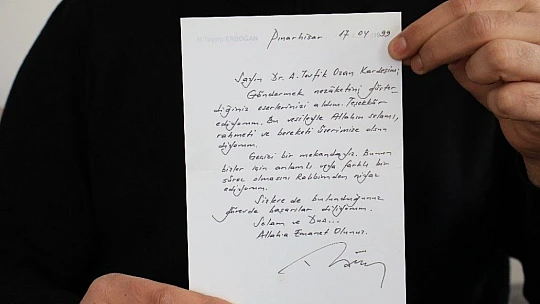 R. Tayyip ERDOĞAN
Pınarhisar 17.04.1999
Sayın Dr. A. Tevfik Ozan Kardeşim;
Göndermek nezâketini göster-
diğiniz eserlerinizi aldım. Teşekkür
ediyorum. Bu vesileyle Allahın selamı,
rahmeti ve bereketi üzerimize olsun
diyorum.
Geçici bir mekandayız. Bunun
bizler için anlamlı veya farklı bir
süreç olmasını Rabbimden niyaz
ediyorum.
Sizlere de bulunduğunuz
yerde başarılar diliyorum.
Selam ve Dua...
Allah'a Emanet Olunuz.